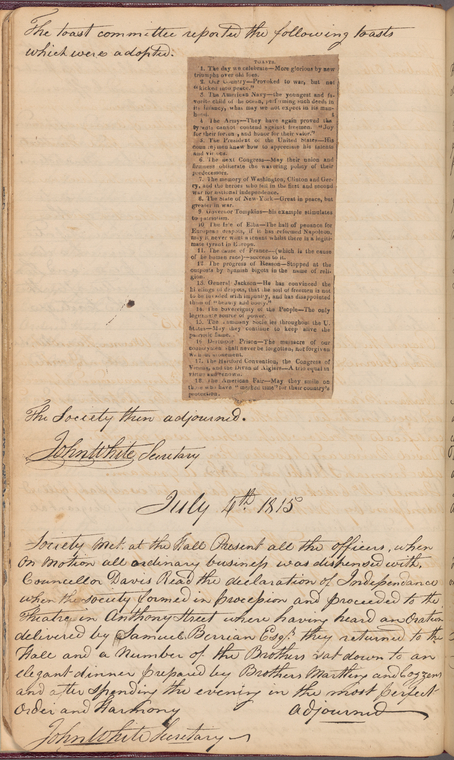 The toast committee reported the following toasts
which were adopted.
TOASTS.
1. The day we celebrate—More glorious by new
triumphs over old foes.
2. Our Country—Provoked to war, but not
"kicked into peace."
3. The American Navy—the youngest and fa-
vorite child of the ocean, performing such deeds in
its infancy, what may we not expect in its man-
hood.
4. The Army—They have again proved that
tyrants cannot contend against freemen. "Joy
for their return, and honor for their valor."
5. The President of the United States—His
know how to appreciate his talents
and virtues.
6. The next Congress—May their union and
firmness obliterate the wavering policy of their
predecessors.
7. The memory of Washington, Clinton and Ger-
ry, and the heroes who fell in the first and second
war for national independence.
8. The State of New York—Great in peace, but
greater in war.
9. Governor Tompkins—his example stimulates
to patriotism.
10. The Isle of Elba—The hall of penance for
European despots, if it has reformed Napoleon,
may it never want a tenant whilst there is a legiti-
mate tyrant in Europe.
11. The cause of France—(which is the cause
of the human race)—success to it.
12. The progress of Reason—Stopped at the
outposts by Spanish bigots in the name of reli-
gion.
13. General Jackson—He has convinced the
of despots, that the soil of freemen is not
to be invaded with impunity, and has disappointed
them of "beauty and booty."
14. The Sovereignty of the People—The only
legitimate source of power.
15. The Tammany societies throughout the U.
States—May they continue to keep alive the
patriotic flame.
16. Dartmoor Prison—The massacre of our
countrymen shall never be forgotten, nor forgiven
without atonement.
17. The Hartford Convention, the Congress of
Vienna, and the Divan of Algiers—A trio equal in
virtue and renown.
18. The American Fair—May they smile on
those who have for their country's
protection.
The Society then adjourned.
John White Secretary
July 4th 1815
Society met at the Hall Present all the officers, when
On motion all ordinary business was dispensed with,
Councillor Davis Read the declaration of Independance
when the society formed in procession and proceeded to the
Theatre in Anthony Street where having heard an Oration
delivered by Samuel Berrian Esqr. they returned to the
Hall and a Number of the Brothers sat down to an
elegant dinner prepared by Brothers Martling and Cozzens
and after spending the evening in the most perfect
Order and Harmony adjourned
John White Secretary